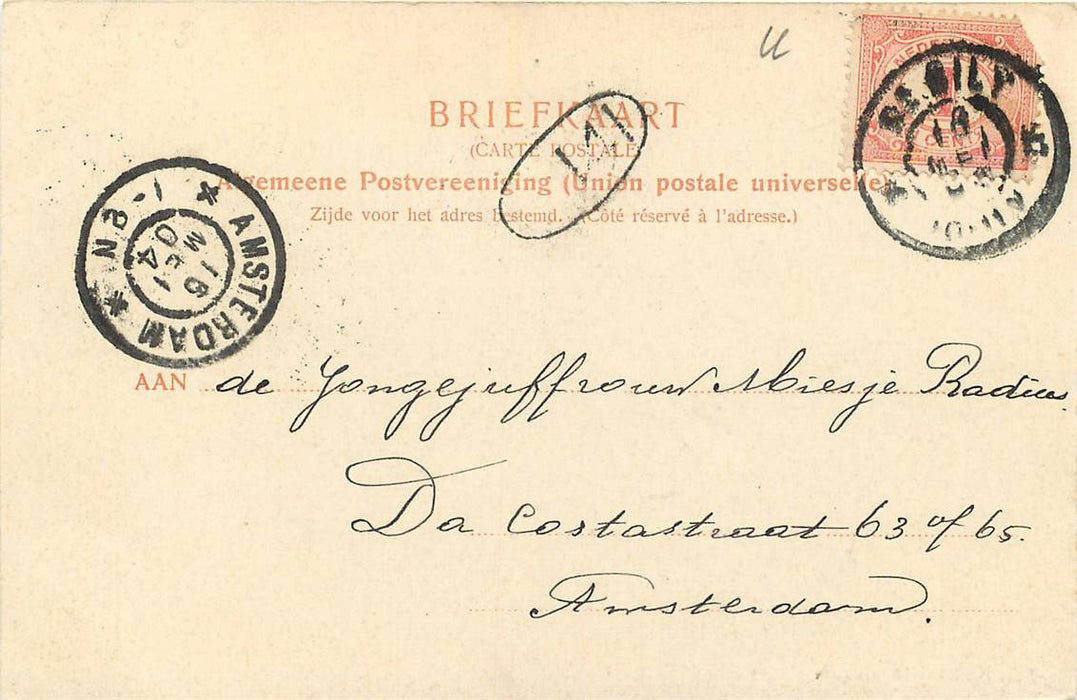 BRIEFKAART
(CARTE POSTALE)
Algemeene Postvereeniging (Union postale universelle)
Zijde voor het adres bestemd. (Côté réservé à l'adresse.)
DE BILT
16
MEI
AMSTERDAM
16
MEI
04
N 8-1
AAN de Jongejuffrouw Miesje Radius.
Da Costastraat 63 of 65.
Amsterdam.